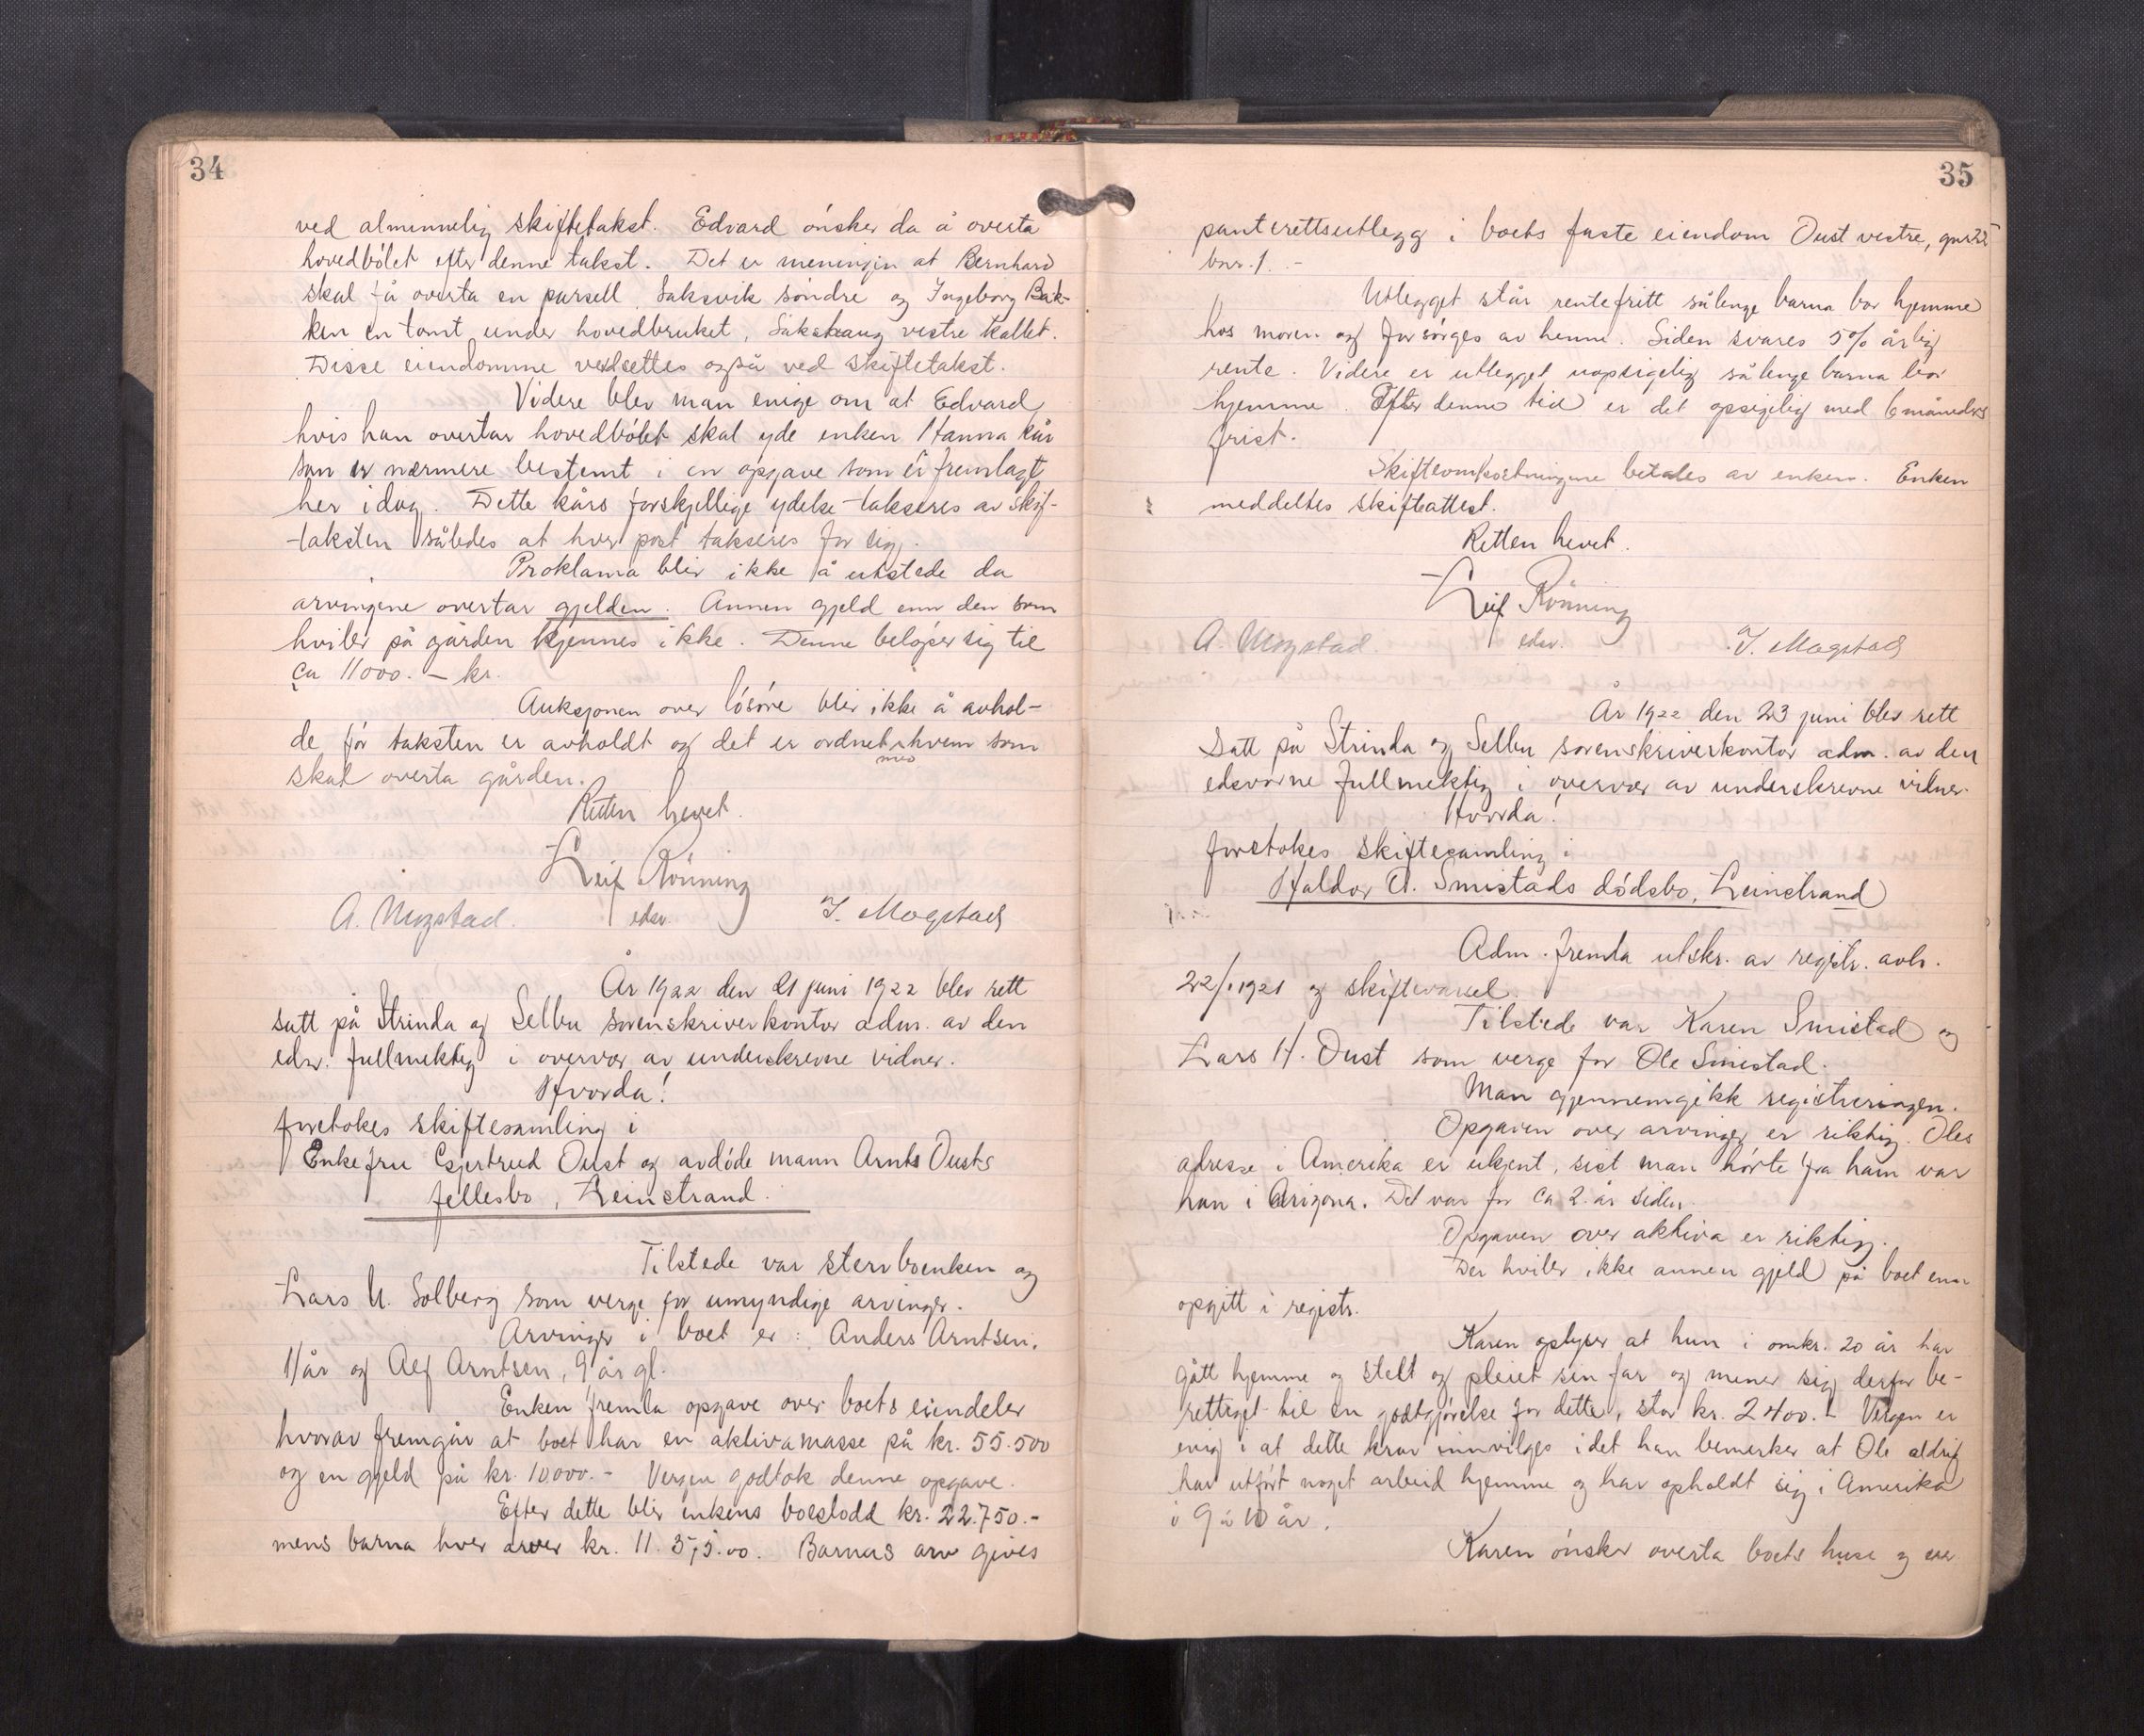 34
ved alminnelig skiftetakst. Edvard ønsker da å overta
hovedbølet efter denne takst. Det er meningen at Bernhard
skal få overta en parsell, Saksvik søndre og Ingeborg Bak-
ken en tomt under hovedbruket, Sakshaug vestre kallet.
Disse eiendomme verdsettes også ved skiftetakst.
Videre blev man enige om at Edvard,
hvis han overtar hovedbølet skal yde enken Hanna kår
som er nærmere bestemt i en opgave som er fremlagt
her idag. Dette kårs forskjellige ydelse takseres av skif-
taksten således at hver post takseres for sig.
Proklama blir ikke å utstede da
arvingene overtar gjelden. Annen gjeld enn den som
hviler på gården kjennes ikke. Denne beløper sig til
ca 11000.- kr.
Auksjonen over løsøre blir ikke å avhol-
de før taksten er avholdt og det er ordnet med hvem som
skal overta gården.
Retten hevet.
Leif Rönning
edsv.
A. Mogstad. J. Mogstad
År 1922 den 21 juni 1922 blev rett
satt på Strinda og Selbu sorenskriverkontor adm. av den
edsv. fullmektig i overvær av underskrevne vidner.
Hvorda!
foretokes skiftesamling i
Enkefru Gjertrud Oust og avdøde mann Arnts Ousts
fellesbo, Leinstrand.
Tilstede var stervboenken og
Lars U. Solberg som verge for umyndige arvinger.
Arvinger i boet er: Anders Arntsen,
11 år og Alf Arntsen, 9 år gl.
Enken fremla opgave over boets eiendeler
hvorav fremgår at boet har en aktivamasse på kr. 55.500
og en gjeld på kr. 10000.- Vergen godtok denne opgave.
Efter dette blir enkens boeslodd kr. 22.750.-
mens barna hver arver kr. 11.375.00. Barnas arv gives
35
panterettsutlegg i boets faste eiendom Oust vestre, gnr.
bnr. 1.-
Utlegget står rentefritt sålenge barna bor hjemme
hos moren og forsørges av henne. Siden svares 5% årlig
rente. Videre er utlegget uopsigelig sålenge barna bor
hjemme. Efter denne tid er det opsigelig med 6 måneders
frist.
Skifteomkostningene betales av enken. Enken
meddeltes skifteattest.
Retten hevet.
Leif Rönning
edsv.
A. Mogstad. J. Mogstad
År 1922 den 23 juni blev rett
satt på Strinda og Selbu sorenskriverkontor adm. av den
edsvorne fullmektig i overvær av underskrevne vidner.
Hvorda!
foretokes skiftesamling i
Haldor A. Smistads dødsbo, Leinstrand
Adm. fremla utskr. av registr. avh.
22/1 1921 og skiftevarsel.
Tilstede var Karen Smistad og
Lars H. Oust som verge for Ole Smistad.
Man gjennemgikk registreringen.
Opgaven over arvinger er riktig. Oles
adresse i Amerika er ukjent, sist man hørte fra ham var
han i Arizona. Det var for ca 2 år siden.
Opgaven over aktiva er riktig.
Der hviler ikke annen gjeld på boet enn
opgitt i registr.
Karen oplyser at hun i omkr. 20 år har
gått hjemme og stelt og pleiet sin far og mener sig derfor be-
rettiget til en godtgjørelse for dette, stor kr. 2400.- Vergen er
enig i at dette krav innvilges idet han bemerker at Ole aldrig
har utført noget arbeid hjemme og har opholdt sig i Amerika
i 9 à 10 år.
Karen ønsker overta boets huse og